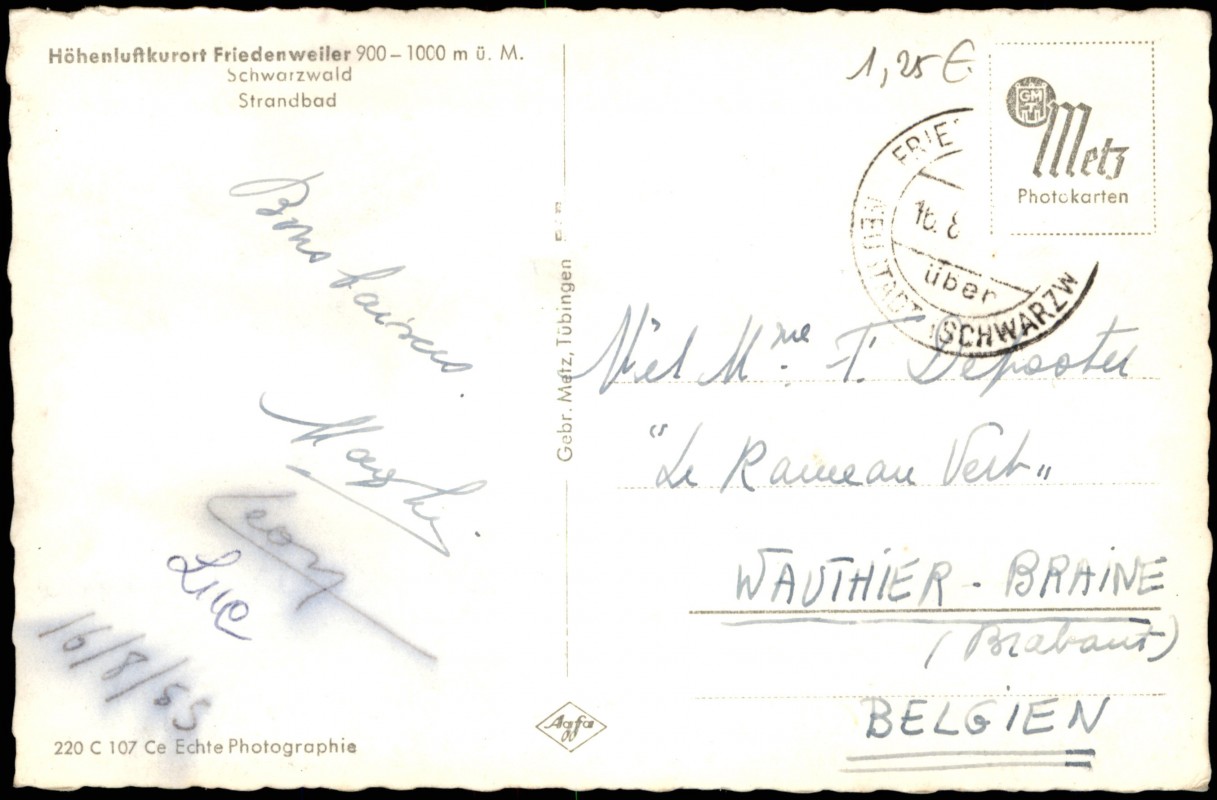 Höhenluftkurort Friedenweiler 900–1000 m ü. M.
Schwarzwald
Strandbad
1,25 €
GM
T
Metz
Photokarten
FRIE
16.8
über
NEUSTADT SCHWARZW
Bons baisers.
Léon
Luc
16/8/55
Gebr. Metz, Tübingen
M. Mme. F. Depooter
"Le Rameau Vert"
WAUTHIER-BRAINE
(Brabant)
BELGIEN
Agfa
220 C 107 Ce Echte Photographie